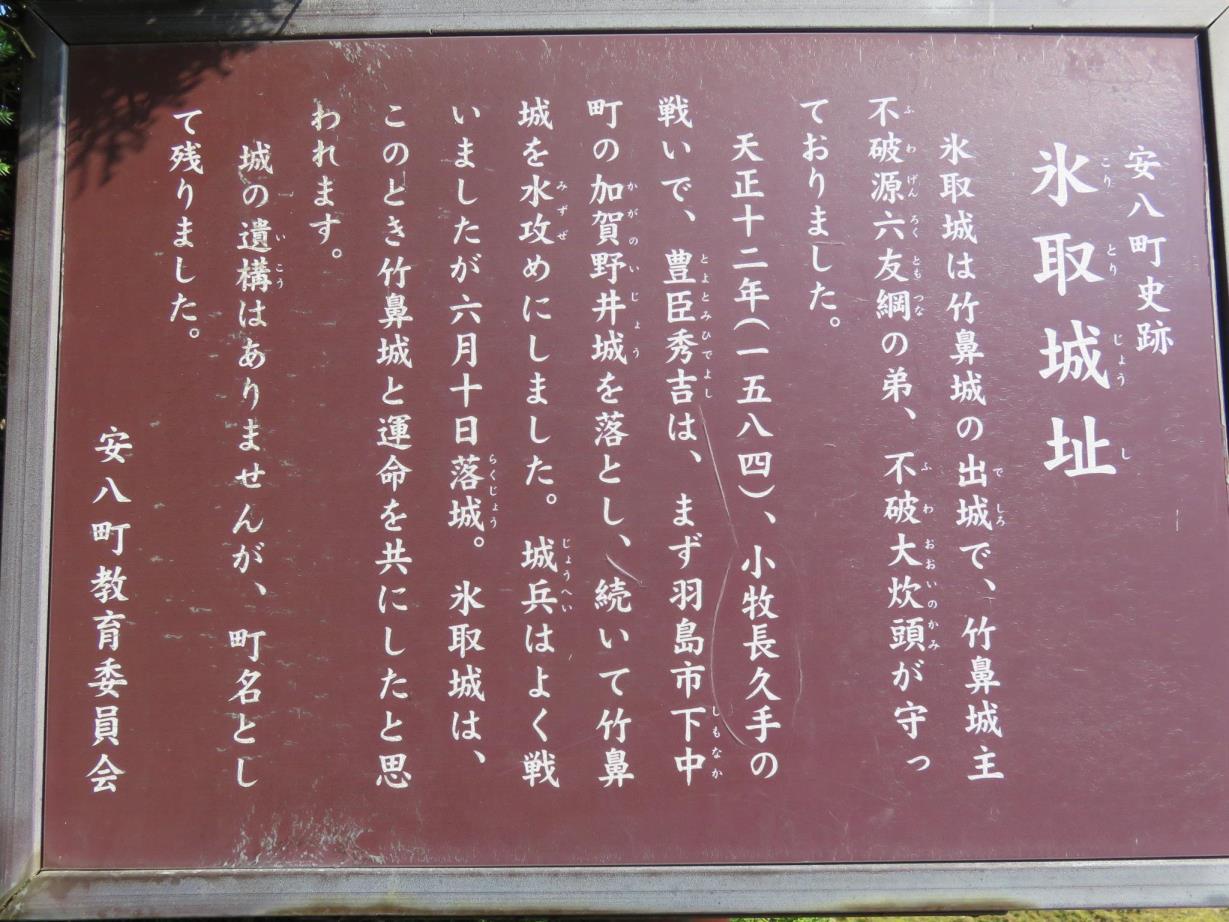 安八町史跡
氷取城址
氷取城は竹鼻城の出城で、竹鼻城主
不破源六友綱の弟、不破大炊頭が守っ
ておりました。
天正十二年(一五八四)、小牧長久手の
戦いで、豊臣秀吉は、まず羽島市下中
町の加賀野井城を落とし、続いて竹鼻
城を水攻めにしました。城兵はよく戦
いましたが六月十日落城。氷取城は、
このとき竹鼻城と運命を共にしたと思
われます。
城の遺構はありませんが、町名とし
て残りました。
安八町教育委員会